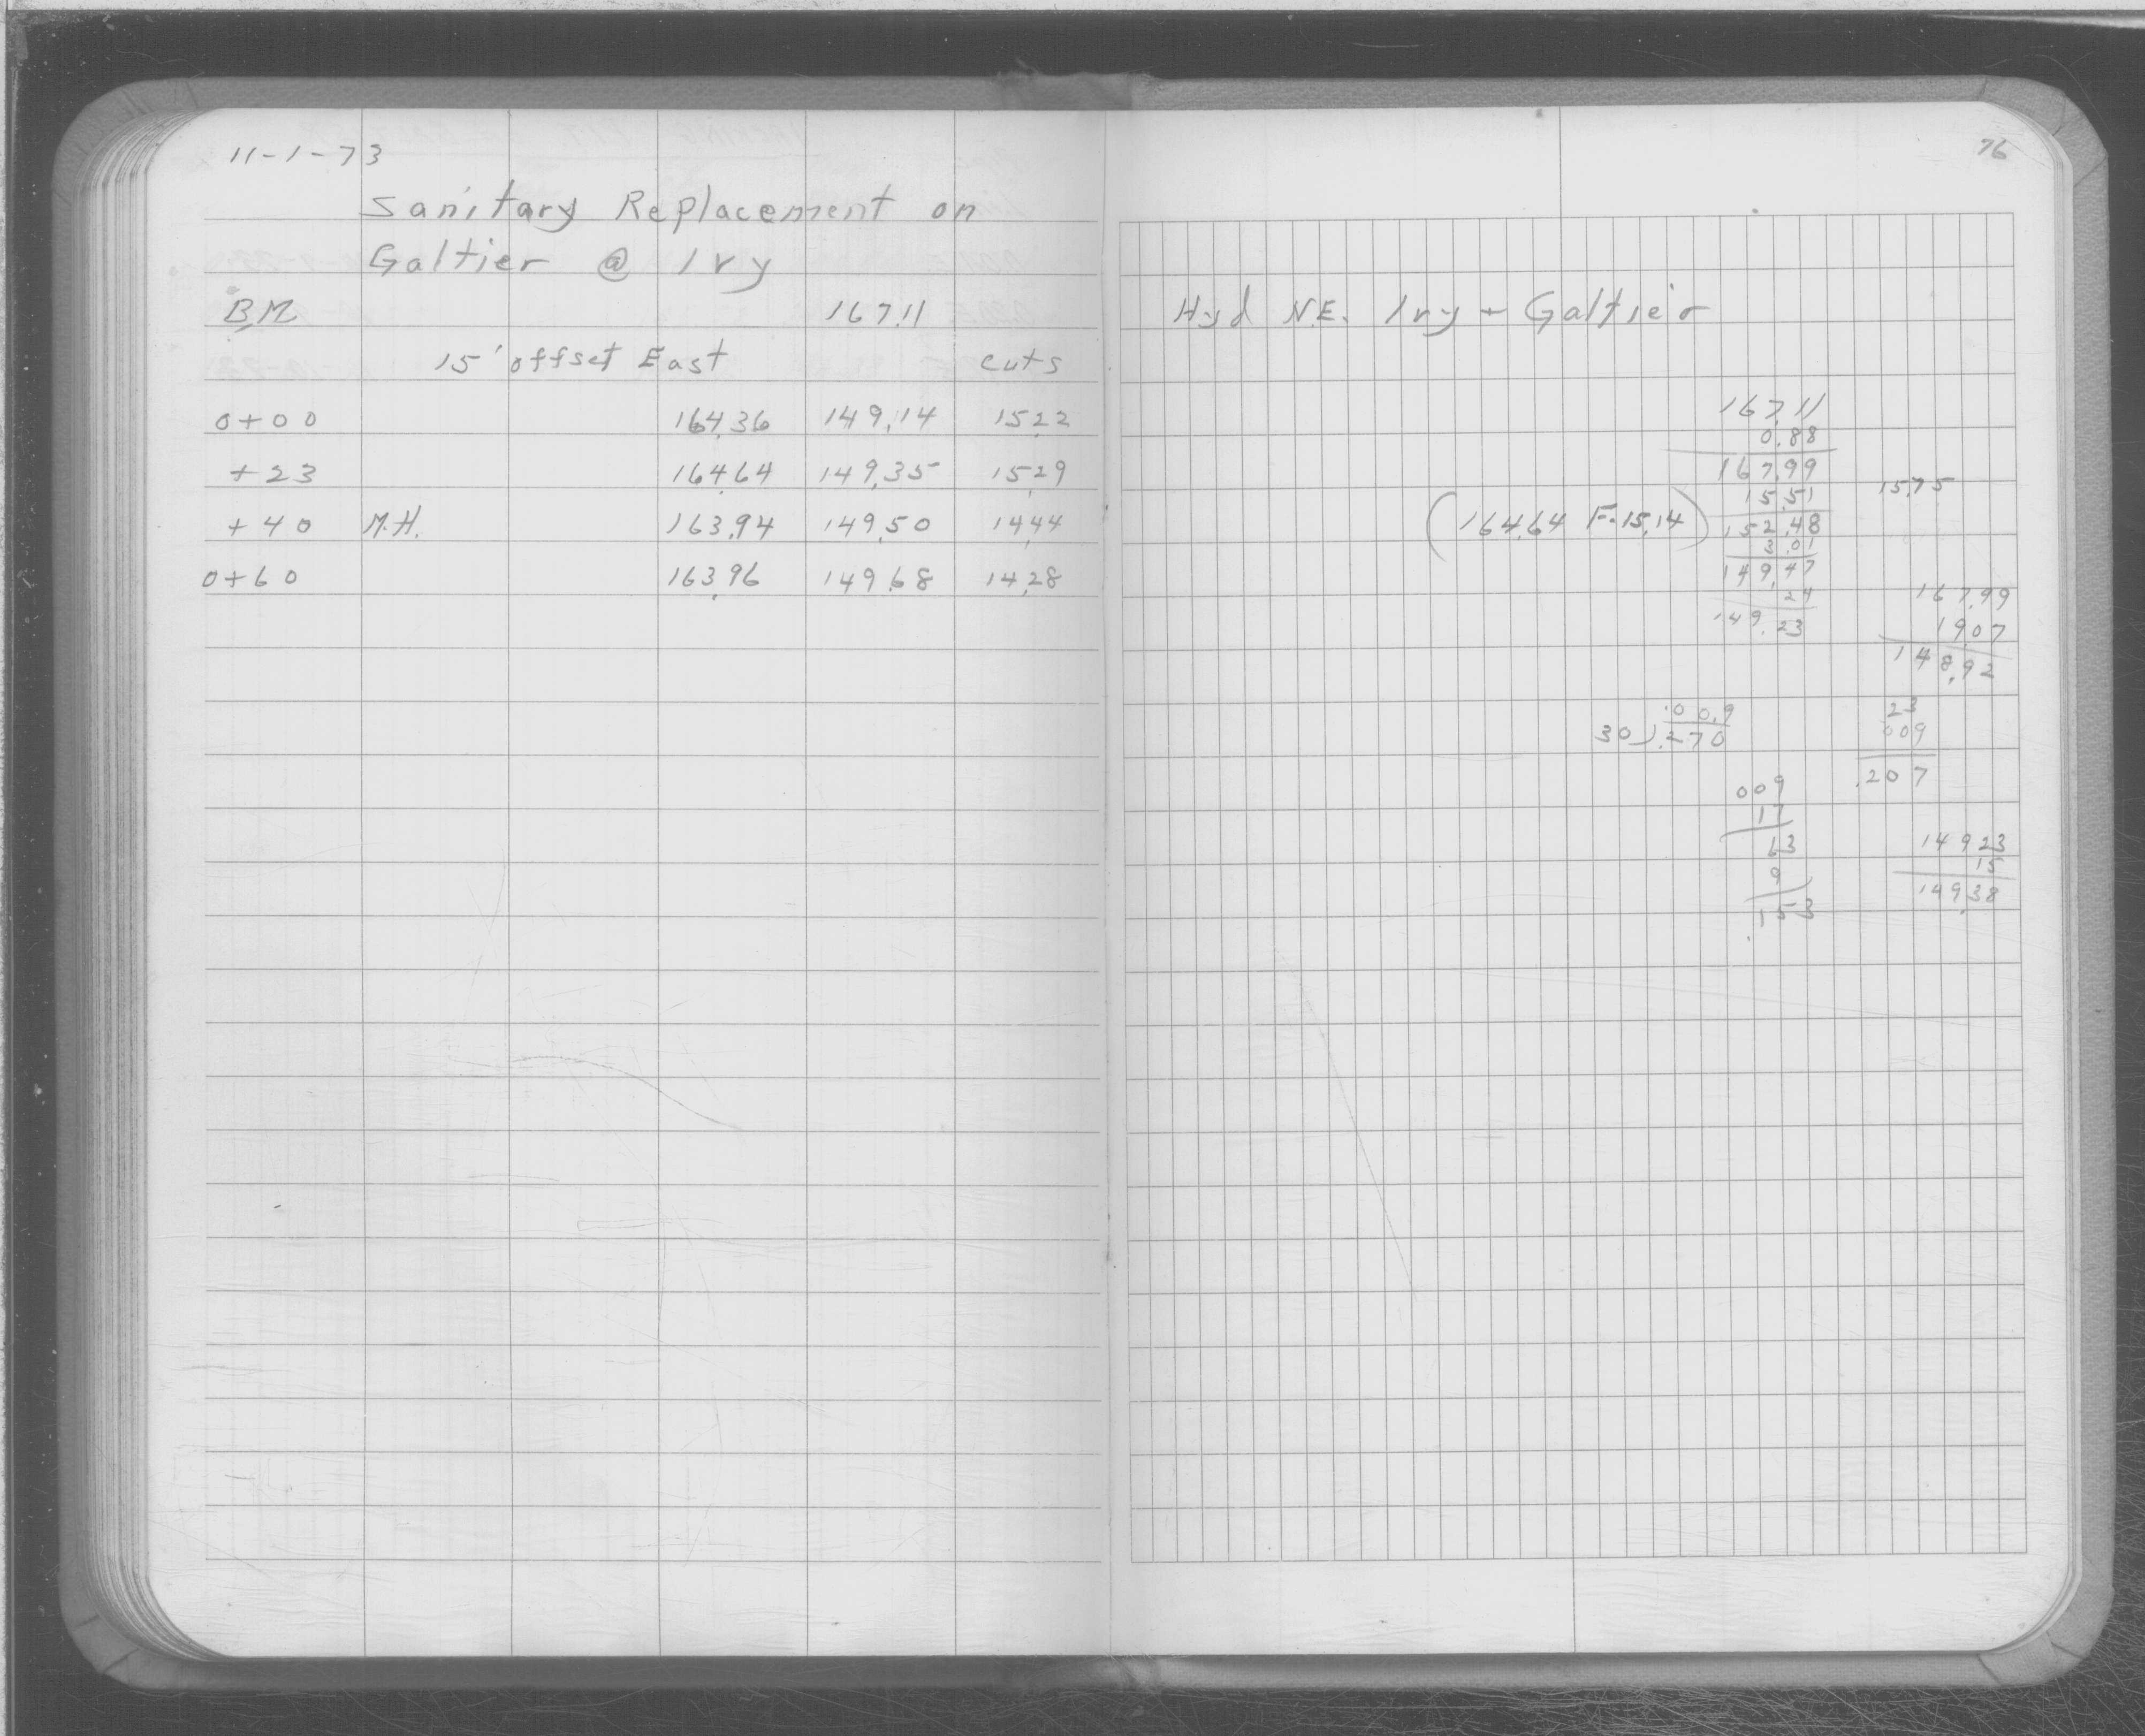 11-1-73
Sanitary Replacement on
Galtier @ Ivy
B.M. 167.11
15' offset East cuts
0+00 164.36 149.14 15.22
+23 164.64 149.35 15.29
+40 M.H. 163.94 149.50 14.44
0+60 163.96 149.68 14.28
76
Hyd N.E. Ivy + Galtier
167.11
0.88
167.99
15.51 15.75
(164.64 F-15.14) 152.48
3.01
149.47
24
149.23
167.99
19.07
148.92
.00.9
30).270
23
009
.207
009
17
63
9
.153
149.23
15
149.38